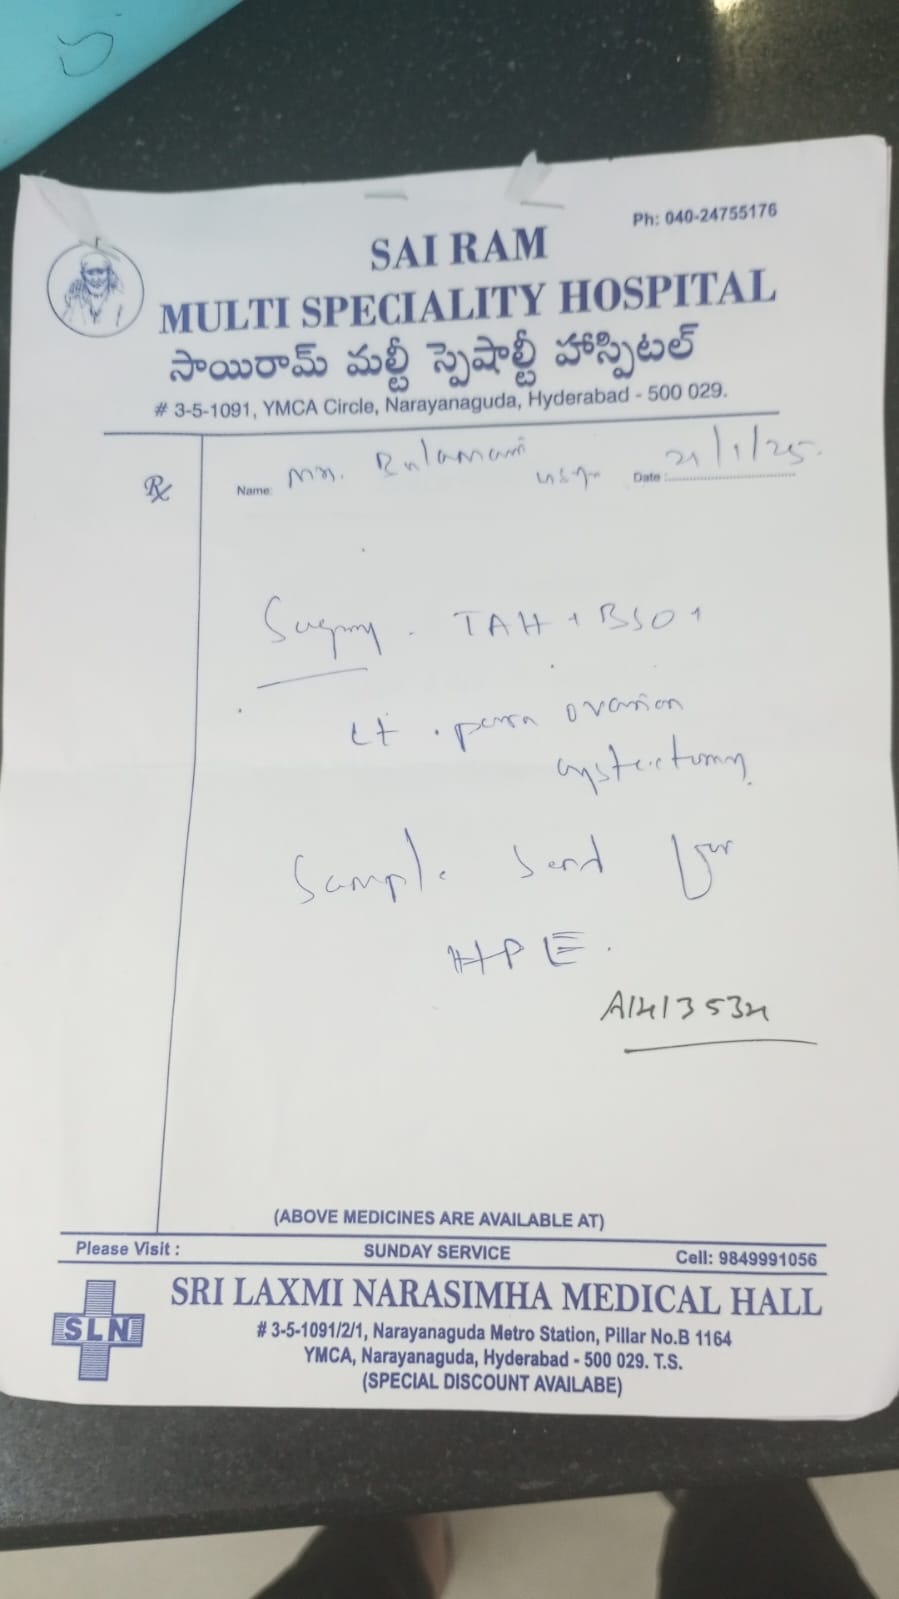 Ph: 040-24755176
SAI RAM
MULTI SPECIALITY HOSPITAL
సాయిరామ్ మల్టీ స్పెషాల్టీ హాస్పిటల్
# 3-5-1091, YMCA Circle, Narayanaguda, Hyderabad - 500 029.
Rx
Name: Date : 21/1/25.
Surgery - TAH + BSO +
Lt . para ovarian
cystectomy
Sample Send for
HPE.
A1413534
(ABOVE MEDICINES ARE AVAILABLE AT)
Please Visit : SUNDAY SERVICE Cell: 9849991056
SLN
SRI LAXMI NARASIMHA MEDICAL HALL
# 3-5-1091/2/1, Narayanaguda Metro Station, Pillar No.B 1164
YMCA, Narayanaguda, Hyderabad - 500 029. T.S.
(SPECIAL DISCOUNT AVAILABE)